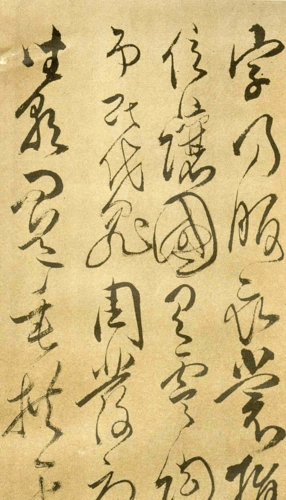 字乃服衣裳推
位讓國有虞陶
弔民伐罪周發
坐朝問道垂拱平